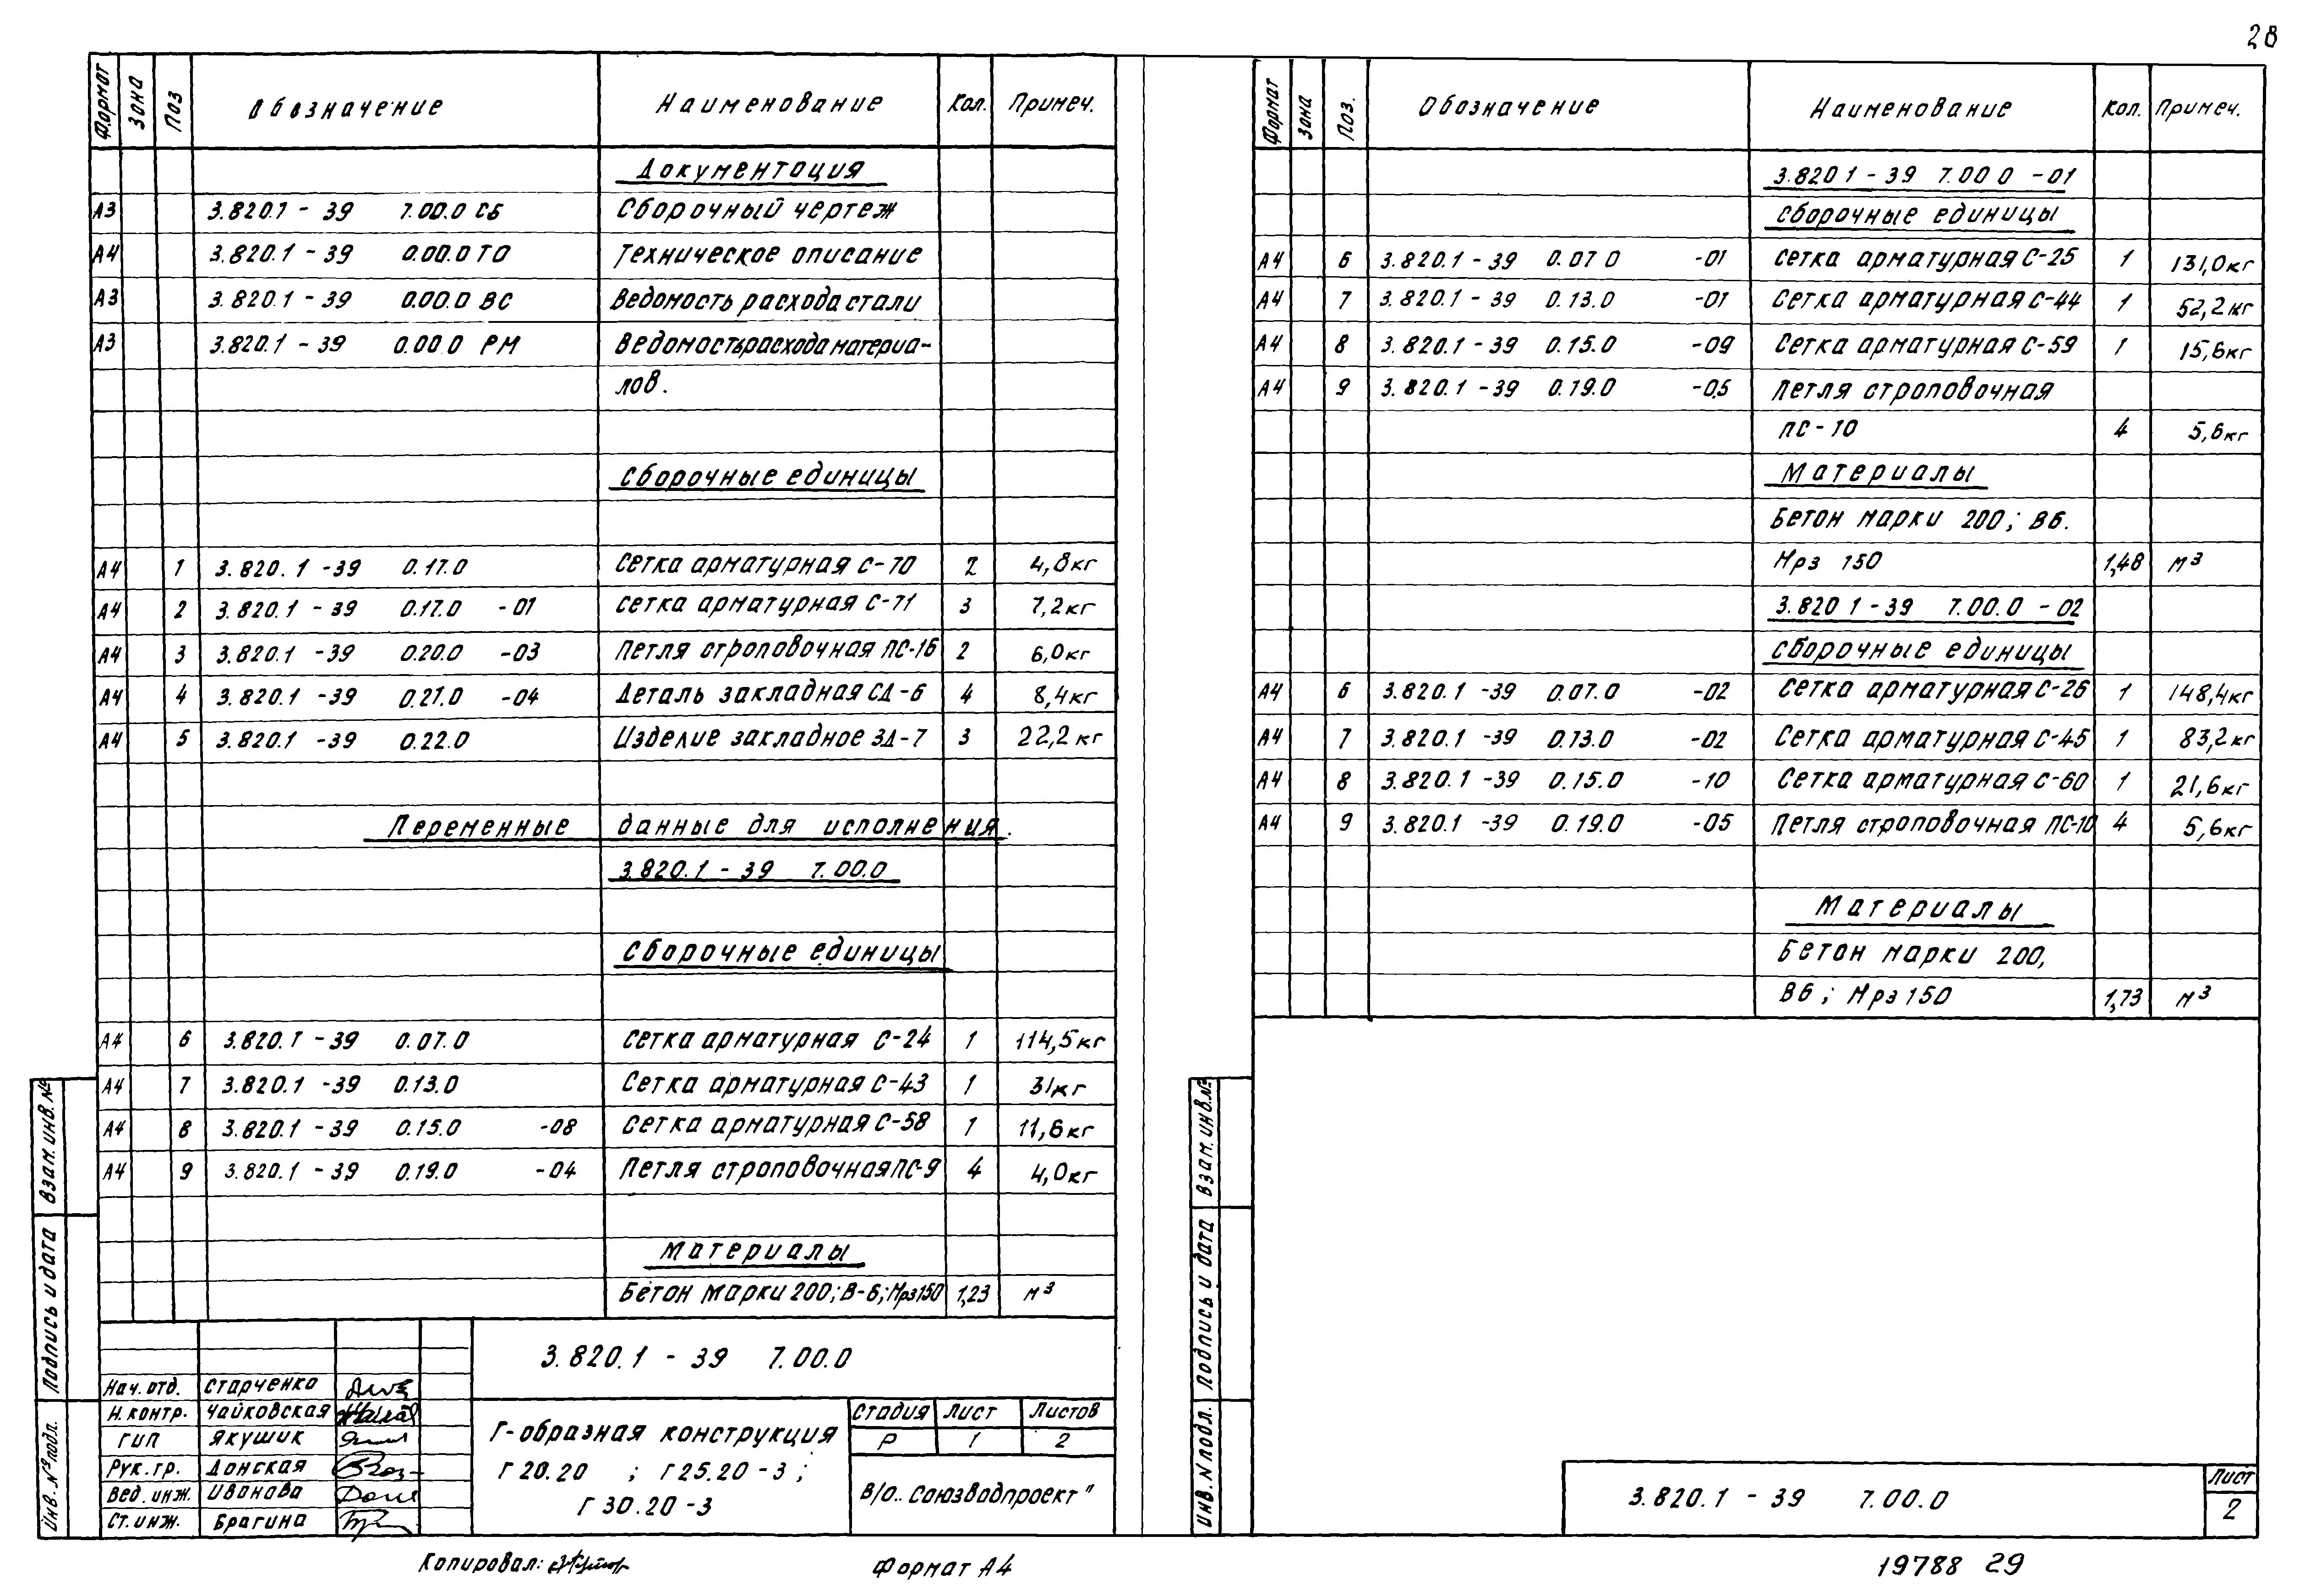 28
Формат Зона Поз Обозначение Наименование Кол. Примеч.
Документация
А3 3.820.1 - 39 7.00.0 СБ Сборочный чертеж
А4 3.820.1 - 39 0.00.0 ТО Техническое описание
А3 3.820.1 - 39 0.00.0 ВС Ведомость расхода стали
А3 3.820.1 - 39 0.00 0 РМ Ведомость расхода материа-
лов.
Сборочные единицы
А4 1 3.820.1 -39 0.17.0 Сетка арматурная С-70 2 4,8кг
А4 2 3.820.1 - 39 0.17.0 -01 Сетка арматурная С-71 3 7,2кг
А4 3 3.820.1 -39 0.20.0 -03 Петля строповочная ПС-16 2 6,0кг
А4 4 3.820.1 -39 0.21.0 -04 Деталь закладная СД-6 4 8,4кг
А4 5 3.820.1 -39 0.22.0 Изделие закладное ЗД-7 3 22,2кг
Переменные данные для исполнения.
3.820.1 - 39 7.00.0
Сборочные единицы
А4 6 3.820.1 - 39 0.07.0 Сетка арматурная С-24 1 114,5кг
А4 7 3.820.1 -39 0.13.0 Сетка арматурная С-43 1 31кг
А4 8 3.820.1 - 39 0.15.0 -08 Сетка арматурная С-58 1 11,6кг
А4 9 3.820.1 - 39 0.19.0 -04 Петля строповочная ПС-9 4 4,0кг
Материалы
Бетон марки 200; В-6; Мрз150 1,23 м³
3.820.1 - 39 7.00.0
Нач. отд. Старченко
Н. контр. Чайковская
ГИП Якушик
Рук. гр. Донская
Вед. инж. Иванова
Ст. инж. Брагина
Г-образная конструкция
Г 20.20 ; Г 25.20 -3 ;
Г 30.20 -3
Стадия Лист Листов
Р 1 2
В/О „Союзводпроект"
Взам. инв. №
Подпись и дата
Инв. № подл.
Копировал:
Формат А4
Формат Зона Поз. Обозначение Наименование Кол. Примеч.
3.820 1 - 39 7.00 0 -01
Сборочные единицы
А4 6 3.820.1 - 39 0.07 0 -01 Сетка арматурная С-25 1 131,0кг
А4 7 3.820.1 - 39 0.13.0 -01 Сетка арматурная С-44 1 52,2кг
А4 8 3.820.1 - 39 0.15.0 -09 Сетка арматурная С-59 1 15,6кг
А4 9 3.820.1 -39 0.19.0 -05 Петля строповочная
ПС-10 4 5,6кг
Материалы
Бетон марки 200; В6.
Мрз 150 1,48 м³
3.820 1 - 39 7.00.0 - 02
Сборочные единицы
А4 6 3.820.1 -39 0.07.0 -02 Сетка арматурная С-26 1 148,4кг
А4 7 3.820.1 -39 0.13.0 -02 Сетка арматурная С-45 1 83,2кг
А4 8 3.820.1 -39 0.15.0 -10 Сетка арматурная С-60 1 21,6кг
А4 9 3.820.1 -39 0.19.0 -05 Петля строповочная ПС-10 4 5,6кг
Материалы
Бетон марки 200,
В6 ; Мрз 150 1,73 м³
Взам. инв. №
Подпись и дата
Инв. N подл.
3.820.1 - 39 7.00.0
Лист
2
19788 29